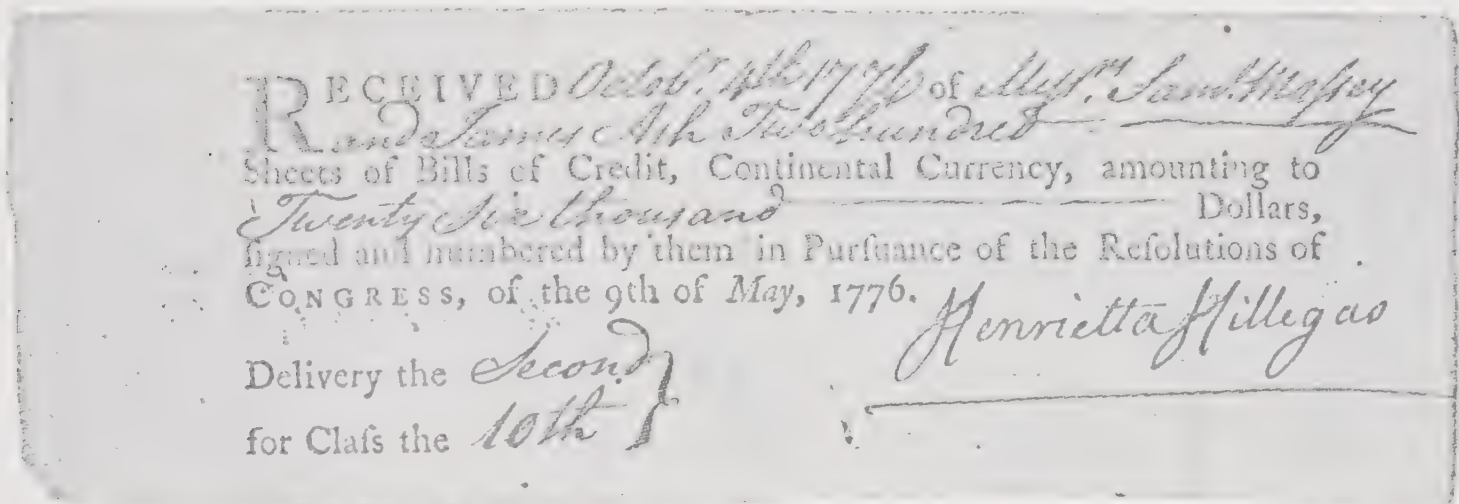 RECEIVED Octobr. 4th 1776 of Messrs. Saml. Massey
and James Ash Two hundred
Sheets of Bills of Credit, Continental Currency, amounting to
Twenty Six thousand Dollars,
ſigned and numbered by them in Purſuance of the Reſolutions of
CONGRESS, of the 9th of May, 1776.
Henrietta Hillegas
Delivery the Second
for Claſs the 10th